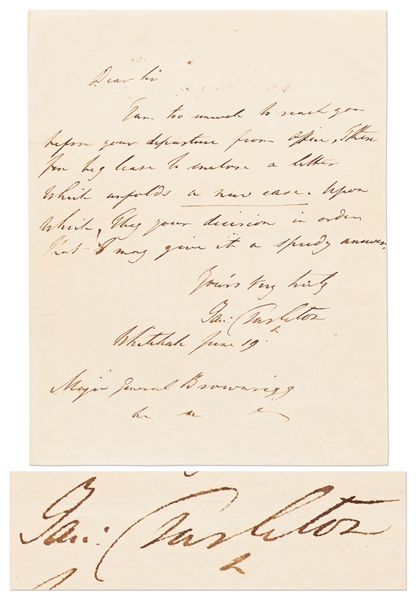 Dear Sir
I am too unwell to reach you
before your departure from Office, I there
fore beg leave to enclose a letter
which unfolds a new case. Upon
which, I beg your decision in order
that I may give it a speedy answer.
Yours Very truly
Ban: Tarleton
Whitehall June 19th
Major General Brownrigg
&c &c &c
Ban: Tarleton